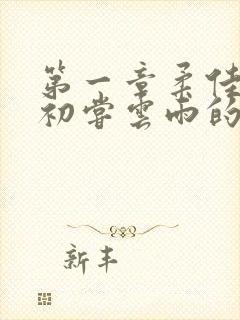 第一章柔佳
初尝云雨的
新丰